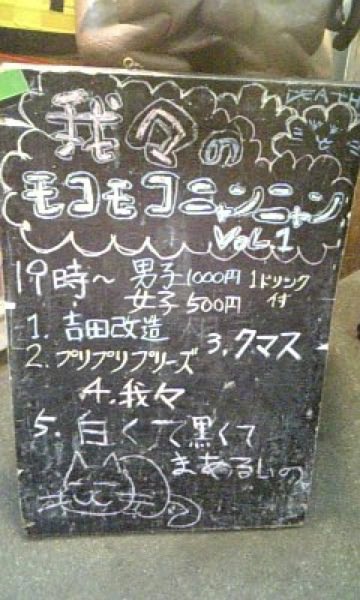 DEATH
我々の
モコモコニャンニャン
VOL.1
19時〜 男子1000円 1ドリンク付
女子500円
1. 吉田改造
2. プリプリプリーズ
3. クマス
4. 我々
5. 白くて黒くて
まあるいの